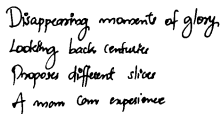 Disappearing moments of glory,
Looking back centuries
Proposes different slices
A mom can experience